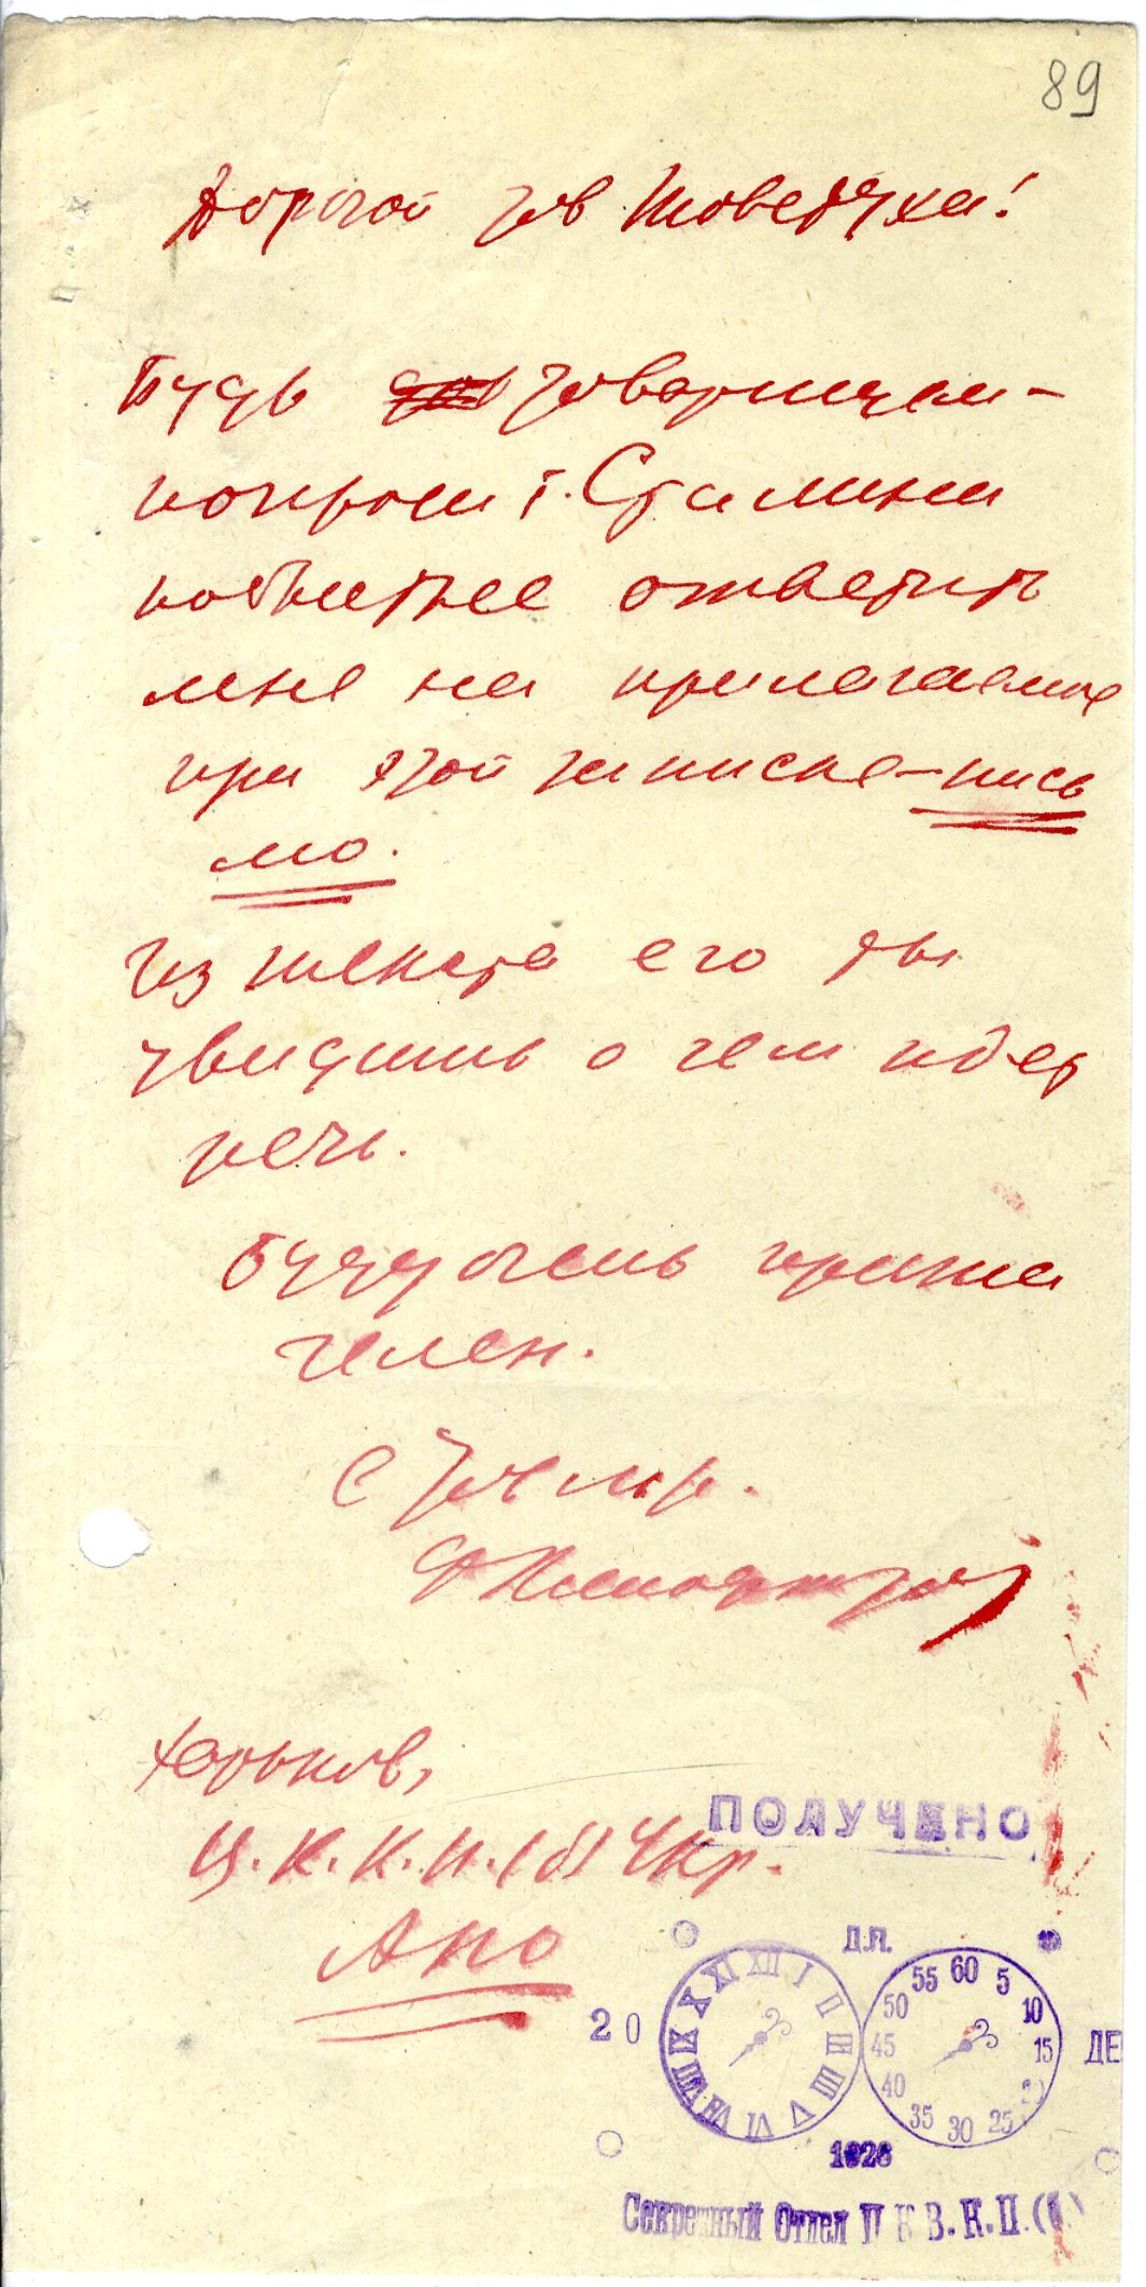 89
Дорогой тов Товстуха!
Будь товарищем –
попроси т. Сталина
поскорее ответить
мне на прилагаемое
при этой записке – пись
мо.
Из текста его ты
увидишь о чем идет
речь.
Буду очень призна
телен.
С тов. пр.
Харьков,
Ц.К.К.П.(б)Укр.
Апо
ПОЛУЧЕНО
Д.П.
20
XII I II III IIII V VI VII VIII IX X XI
60 5 10 15 20 25 30 35 40 45 50 55
ДЕ
1928
Секретный Отдел Ц К В.К.П.(б.)